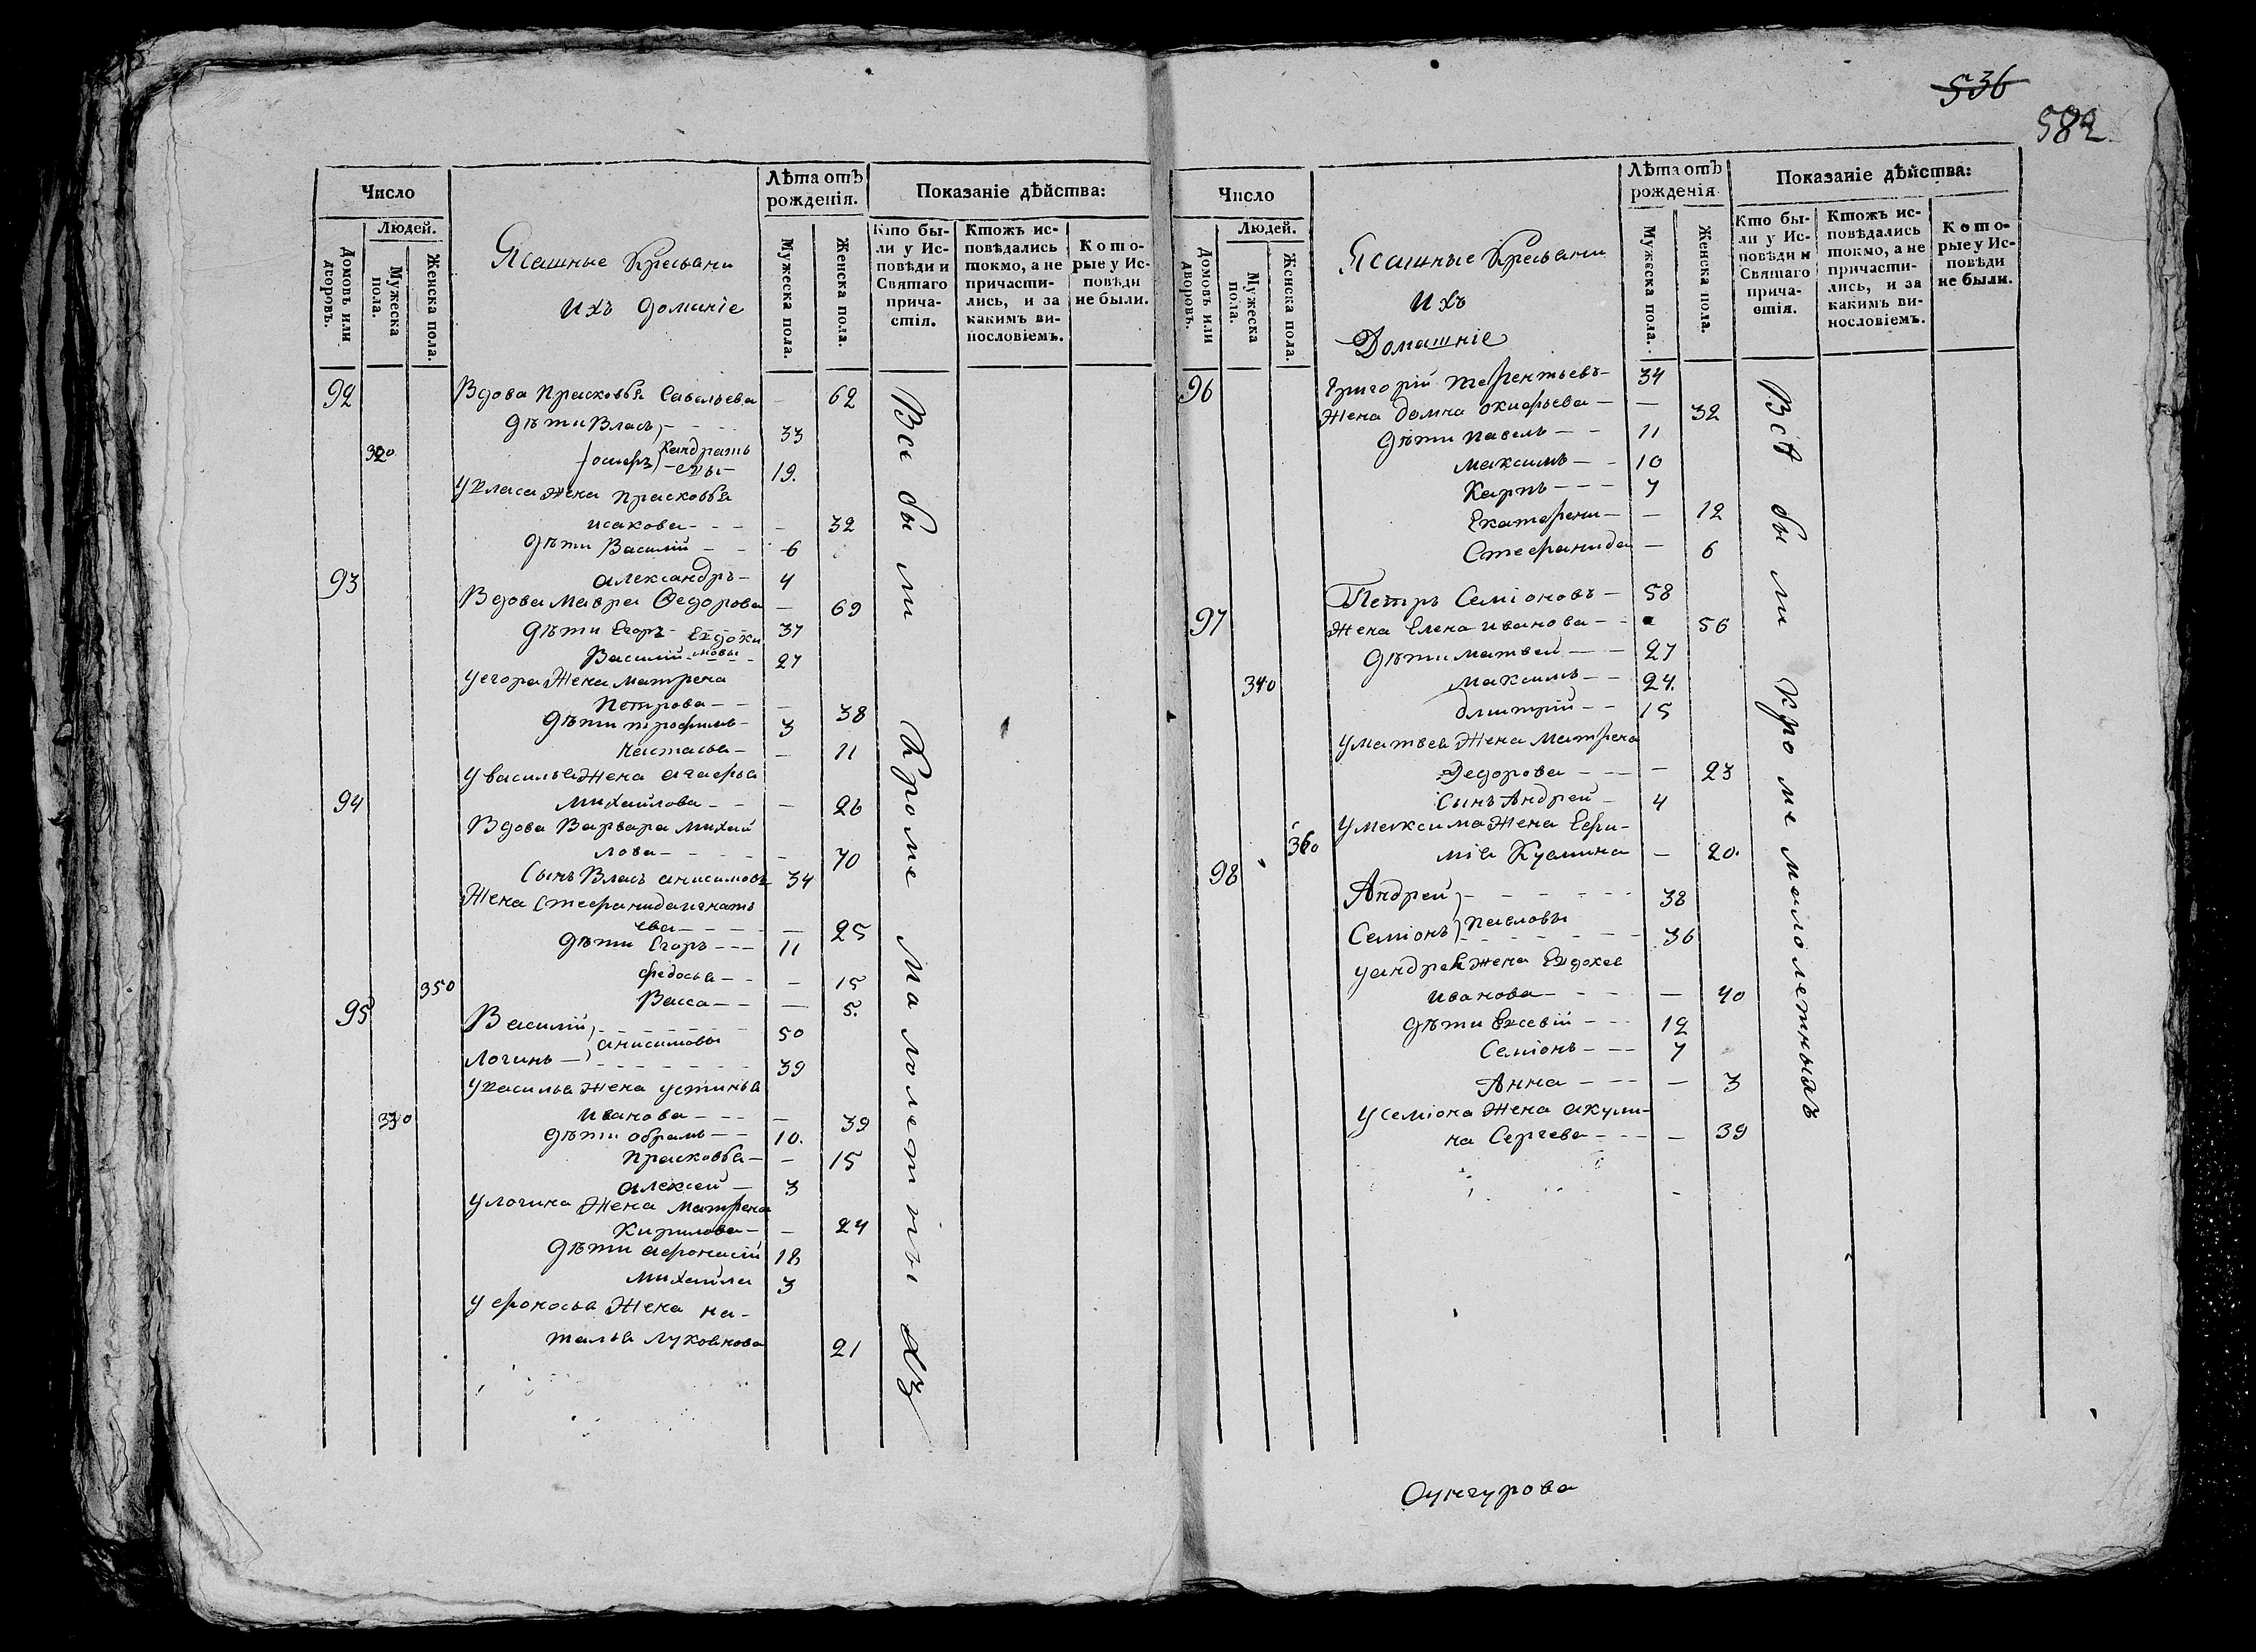 536
582
Число
Людей.
Домовъ или дворовъ.
Мужеска пола.
Женска пола.
Ясашные Кресьяни
Ихъ домачіе
Лѣта отъ рожденія.
Мужеска пола.
Женска пола.
Показаніе дѣйства:
Кто были у Исповѣди и Святаго причастія.
Ктожъ исповѣдались токмо, а не причастились, и за какимъ винословіемъ.
Которые у Исповѣди не были.
92 Вдова Прасковья Савельева — 62
дѣти Власъ 33
320 осиєръ Кандратьевы 19.
у власа жена Прасковья
исакова — 32
дѣти Василій 6
александръ 4
93 Вдова Мавра Ѳедорова — 69
дѣти Егоръ Евдокимовы 37
Василий 27
у егора Жена матрена
Петрова — 38
дѣти трофимъ 3
настасья — 11
у василья Жена агафья
михайлова — 26
94 Вдова Варвара михай
лова — 70
Сынъ Власъ анисимовъ 34
Жена Стефанида игнать
ева — 25
дѣти Егоръ 11
федосья — 15
350 Васса — 5.
95 Василій анисимовы 50
Логинъ 39
у василья жена устинья
Иванова — 39
330 дѣти обрамъ 10.
Прасковья — 15
алексей 3
у логина Жена матрена
Кирилова — 24
дѣти афонасій 18
михайла 3
у афонасья Жена на-
талья лукоянова 21
Всѣ были Кроме Малолетныхъ
Число
Людей.
Домовъ или дворовъ.
Мужеска пола.
Женска пола.
Ясашные Кресьяни
Ихъ
Домашніе
Лѣта отъ рожденія
Мужеска пола.
Женска пола.
Показаніе дѣйства:
Кто были у Исповѣди и Святаго причастія.
Ктожъ исповѣдались токмо, а не причастились, и за какимъ винословіемъ.
Которые у Исповѣди не были.
96 Григорій терентьевъ 34
Жена домна — 32
дѣти павелъ 11
максимъ 10
Карпъ 7
Екатерина — 12
Стефанида — 6
97 Петръ Семіоновъ 58
Жена Елена иванова 56
дѣти матвей 27
340 максимъ 24.
дмитрій 15
у матвея Жена матрена
Федорова — 23
Сынъ Андрей 4
у максима Жена Ефи-
360 мія Кузмина — 20.
98 Андрей 38
Семіонъ Павловы 36
у андрея жена Евдокея
иванова — 40
дѣти Евсевій 12
Семіонъ 7
Анна — 3
у семіона жена акули-
на Сергеева — 39
Всѣ были кроме малолетныхъ
Сунгурова